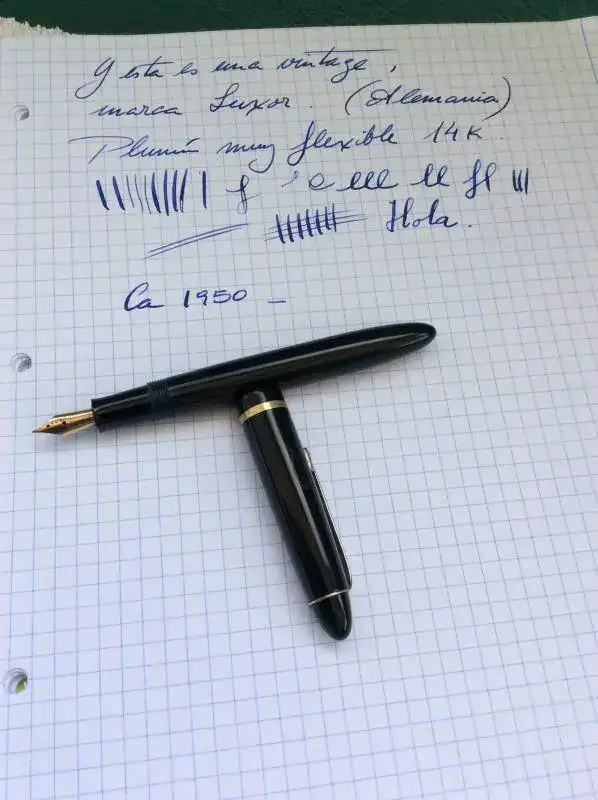 Y esta es una vintage,
marca Luxor. (Alemania)
Plumín muy flexible 14K.
Hola.
Ca 1950 -